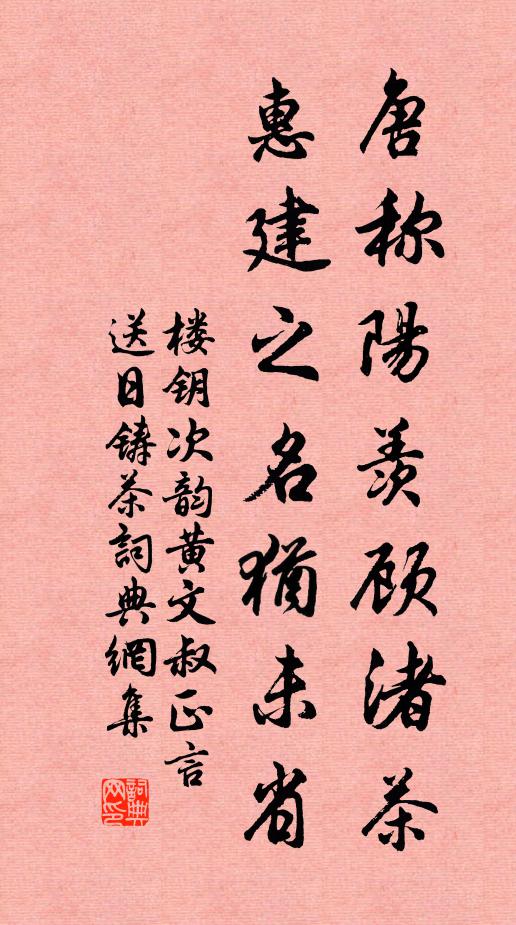 唐称陽羨顾渚茶
惠建之名猶未省
楼钥次韵黄文叔正言
送日铸茶詞典網集
詞典网印